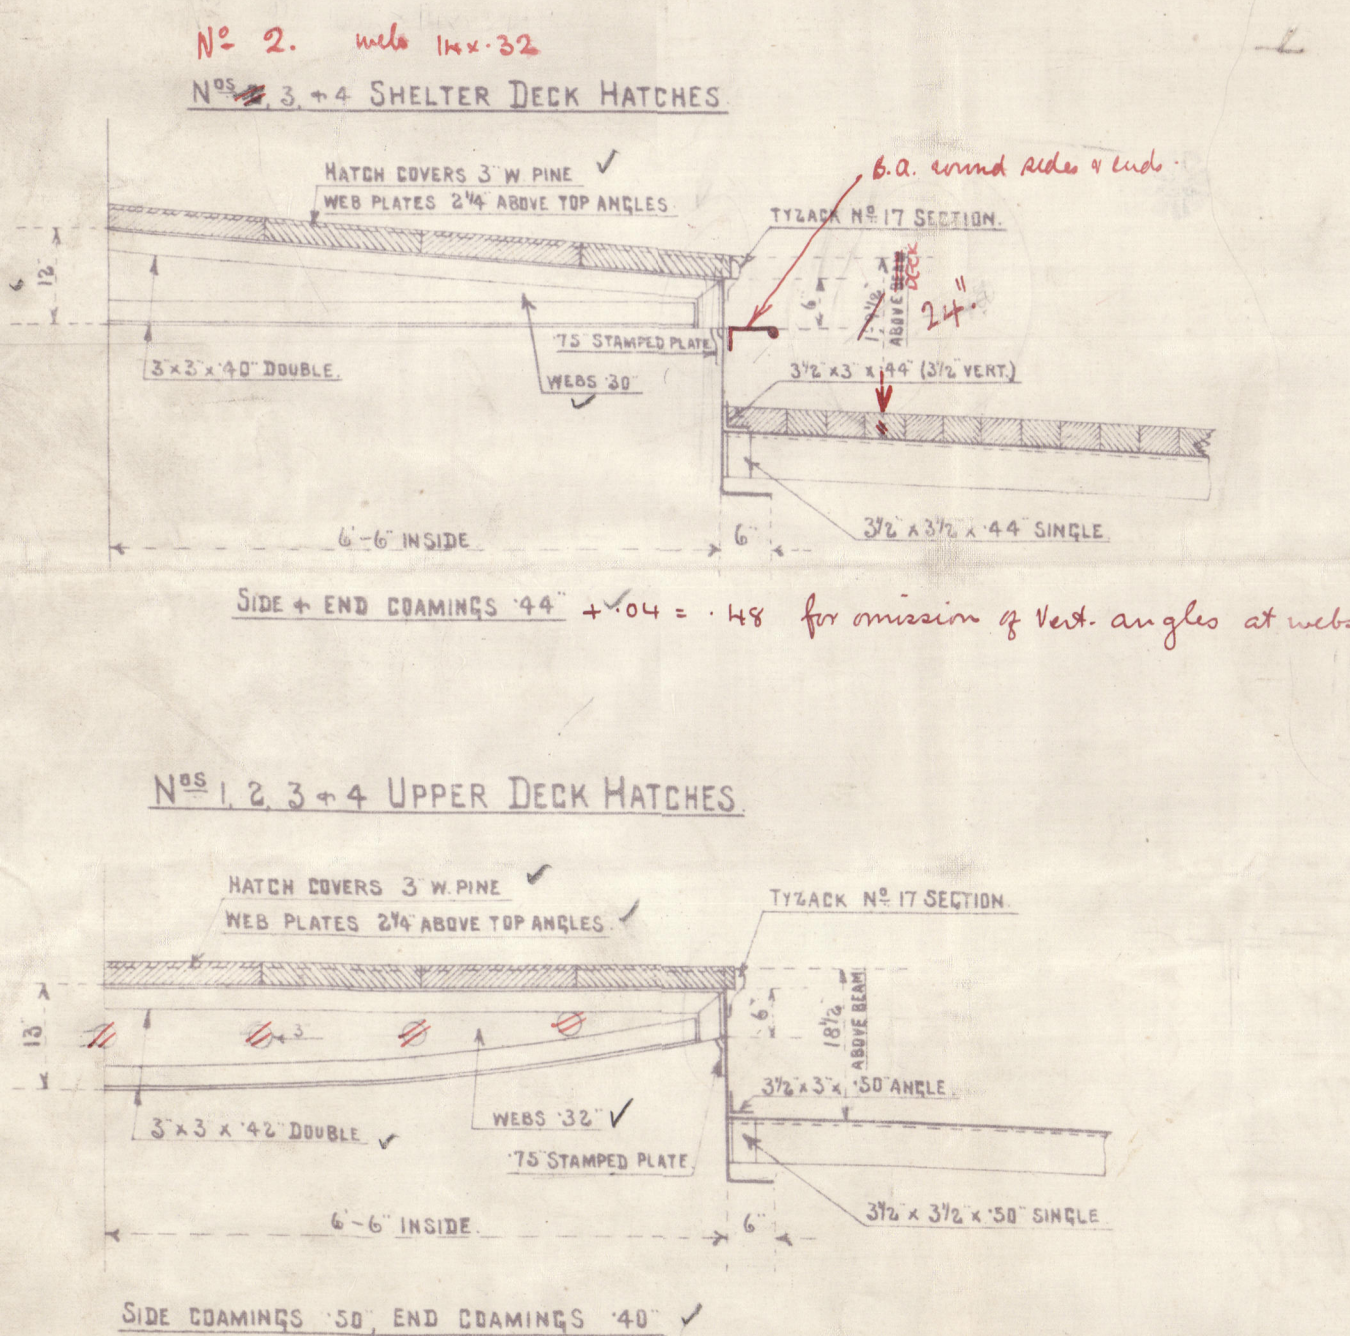 Nº 2. webs 14 x .32
Nᵒˢ 2, 3, + 4 SHELTER DECK HATCHES.
HATCH COVERS 3" W. PINE ✓
WEB PLATES 2¼" ABOVE TOP ANGLES.
B.A. round sides & ends.
TYZACK Nº 17 SECTION.
12"
6"
ABOVE BEAM
DECK
24"
·75" STAMPED PLATE
3½" x 3" x ·44" (3½" VERT.)
3" x 3" x ·40" DOUBLE.
WEBS ·30" ✓
3½" x 3½" x ·44" SINGLE.
6'-6" INSIDE
6"
SIDE + END COAMINGS ·44" ✓ + .04 = .48 for omission of Vert. angles at webs
Nᵒˢ 1, 2, 3 + 4 UPPER DECK HATCHES.
HATCH COVERS 3" W. PINE ✓
WEB PLATES 2¼" ABOVE TOP ANGLES. ✓
TYZACK Nº 17 SECTION.
13"
3"
6"
18½"
ABOVE BEAM
3½" x 3" x ·50" ANGLE.
3" x 3" x ·42" DOUBLE ✓
WEBS ·32" ✓
·75" STAMPED PLATE.
3½" x 3½" x ·50" SINGLE
6'-6" INSIDE.
6"
SIDE COAMINGS ·50", END COAMINGS ·40" ✓